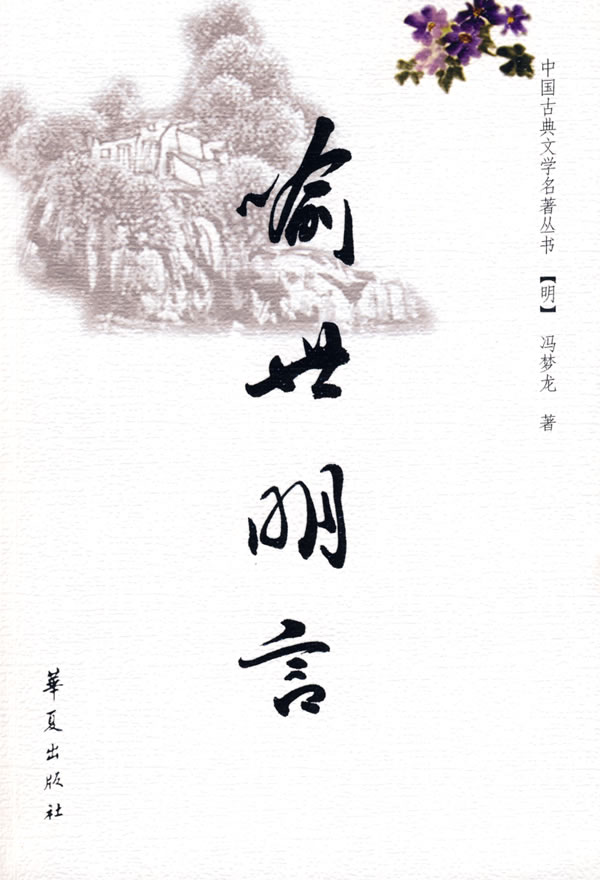 中国古典文学名著丛书 【明】 冯梦龙 著
喻世明言
華夏出版社